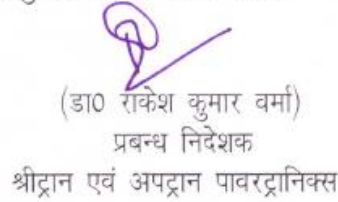 (डा0 राकेश कुमार वर्मा)
प्रबन्ध निदेशक
श्रीट्रान एवं अपट्रान पावरट्रानिक्स